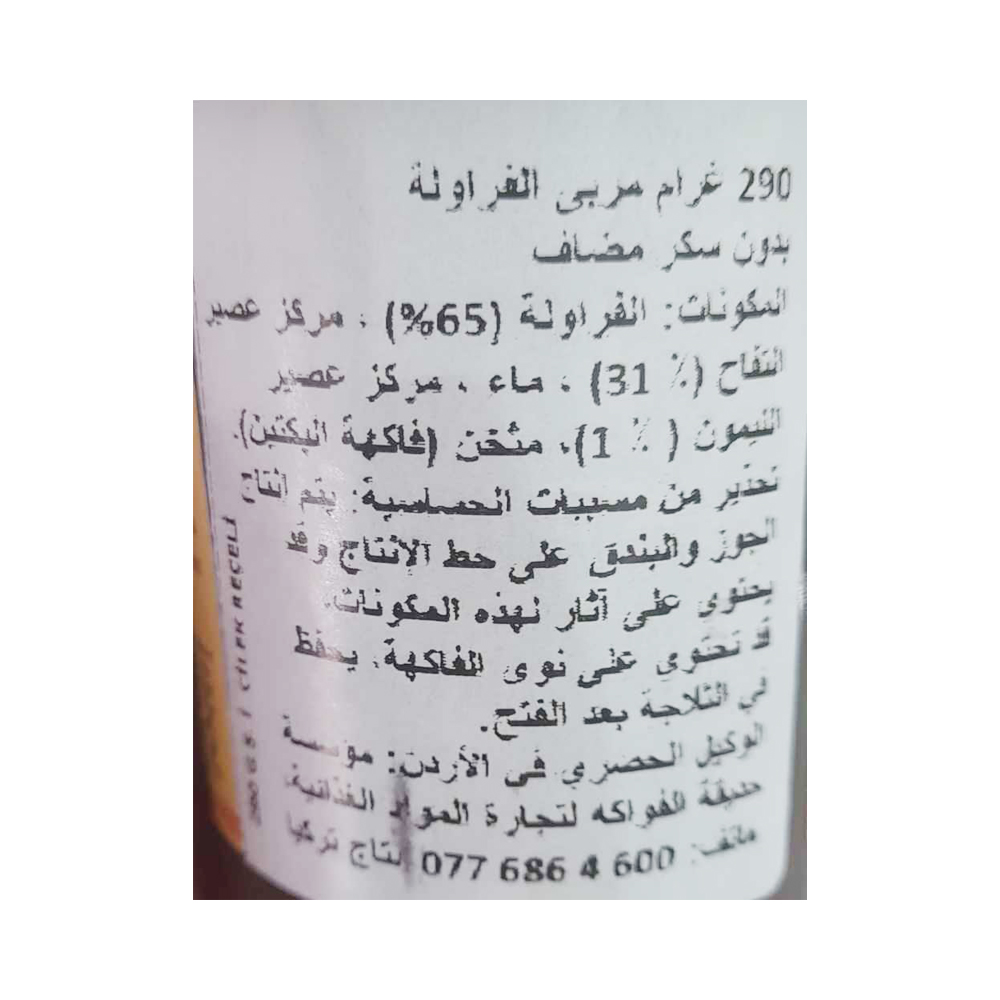 290 غرام مربى الفراولة
بدون سكر مضاف
المكونات: الفراولة (65%) ، مركز عصير
التفاح (31 %) ، ماء ، مركز عصير
الليمون ( % 1)، مثخن (فاكهة البكتين).
تحذير من مسببات الحساسية: يتم انتاج
الجوز والبندق على خط الإنتاج وقد
يحتوي على آثار لهذه المكونات.
قد تحتوي على نوى للفاكهة. يحفظ
في الثلاجة بعد الفتح.
الوكيل الحصري في الأردن: مؤسسة
حديقة الفواكه لتجارة المواد الغذائية.
هاتف: 077 686 4 600 إنتاج تركيا
290 G S ÇİLEK REÇELİ